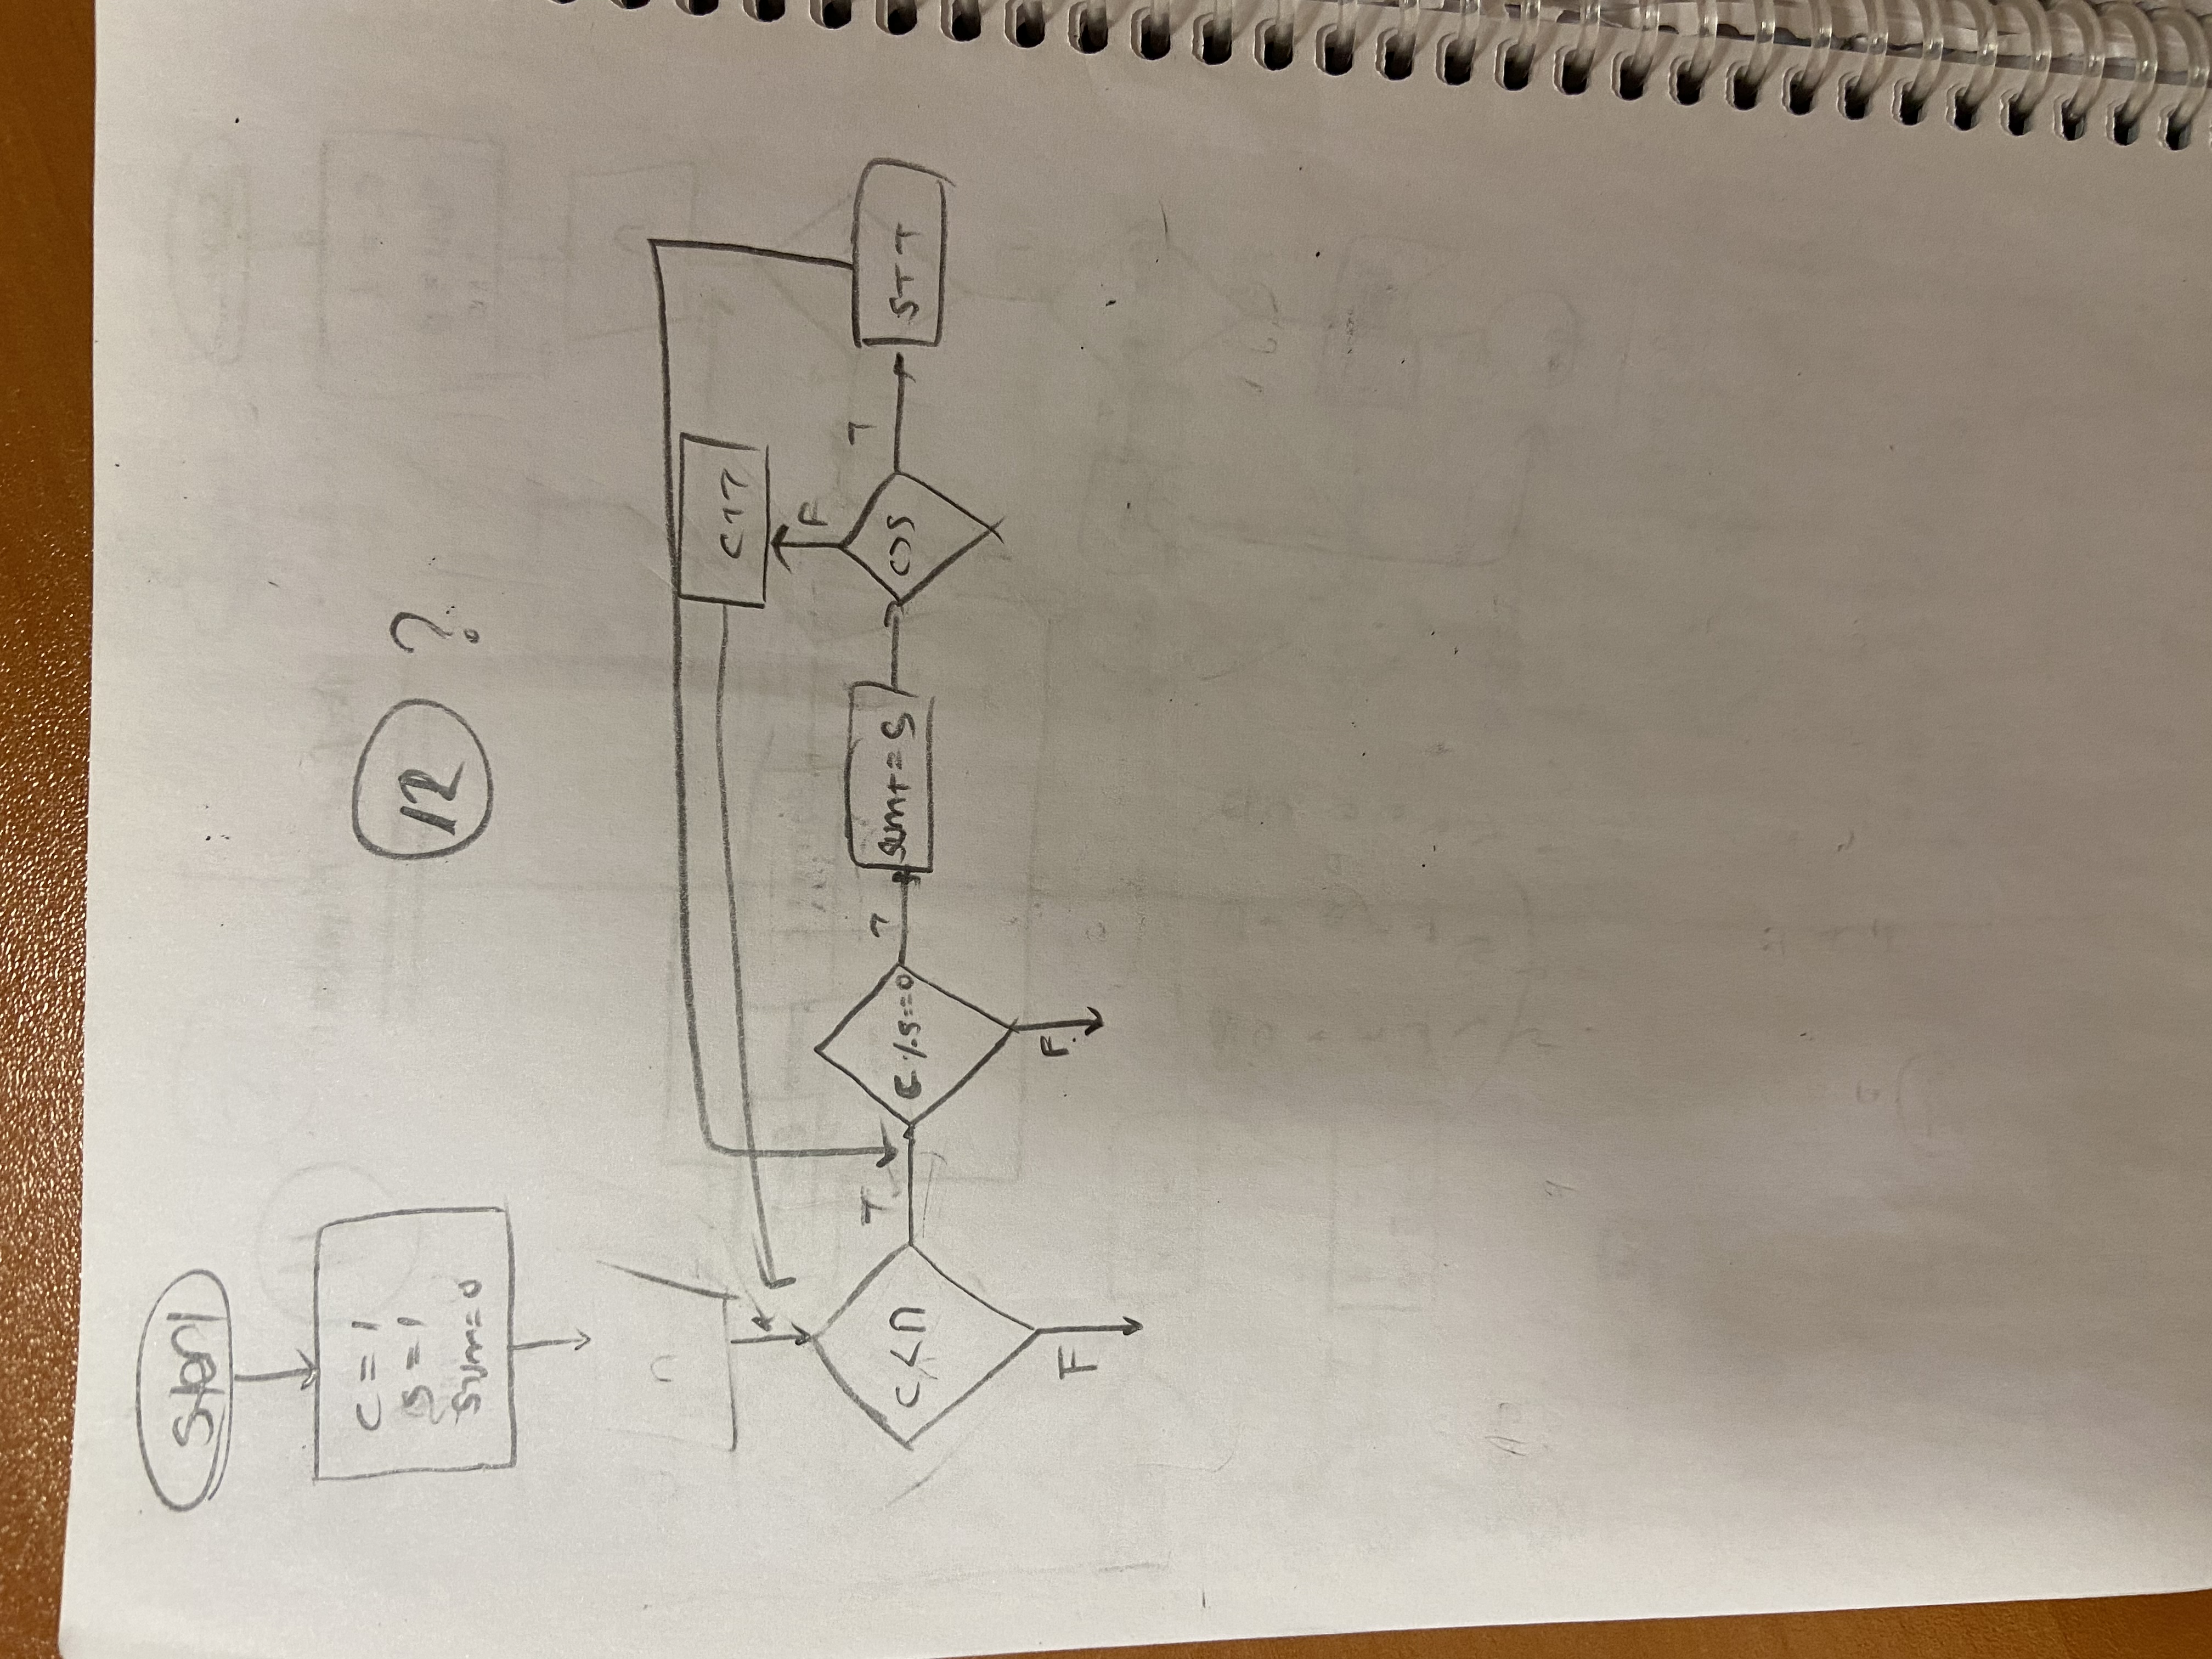 Start
12 ?
C = 1
S = 1
Sum = 0
n
C < n
T
F
C % S == 0
T
F
Sum += S
C > S
T
F
S++
C++